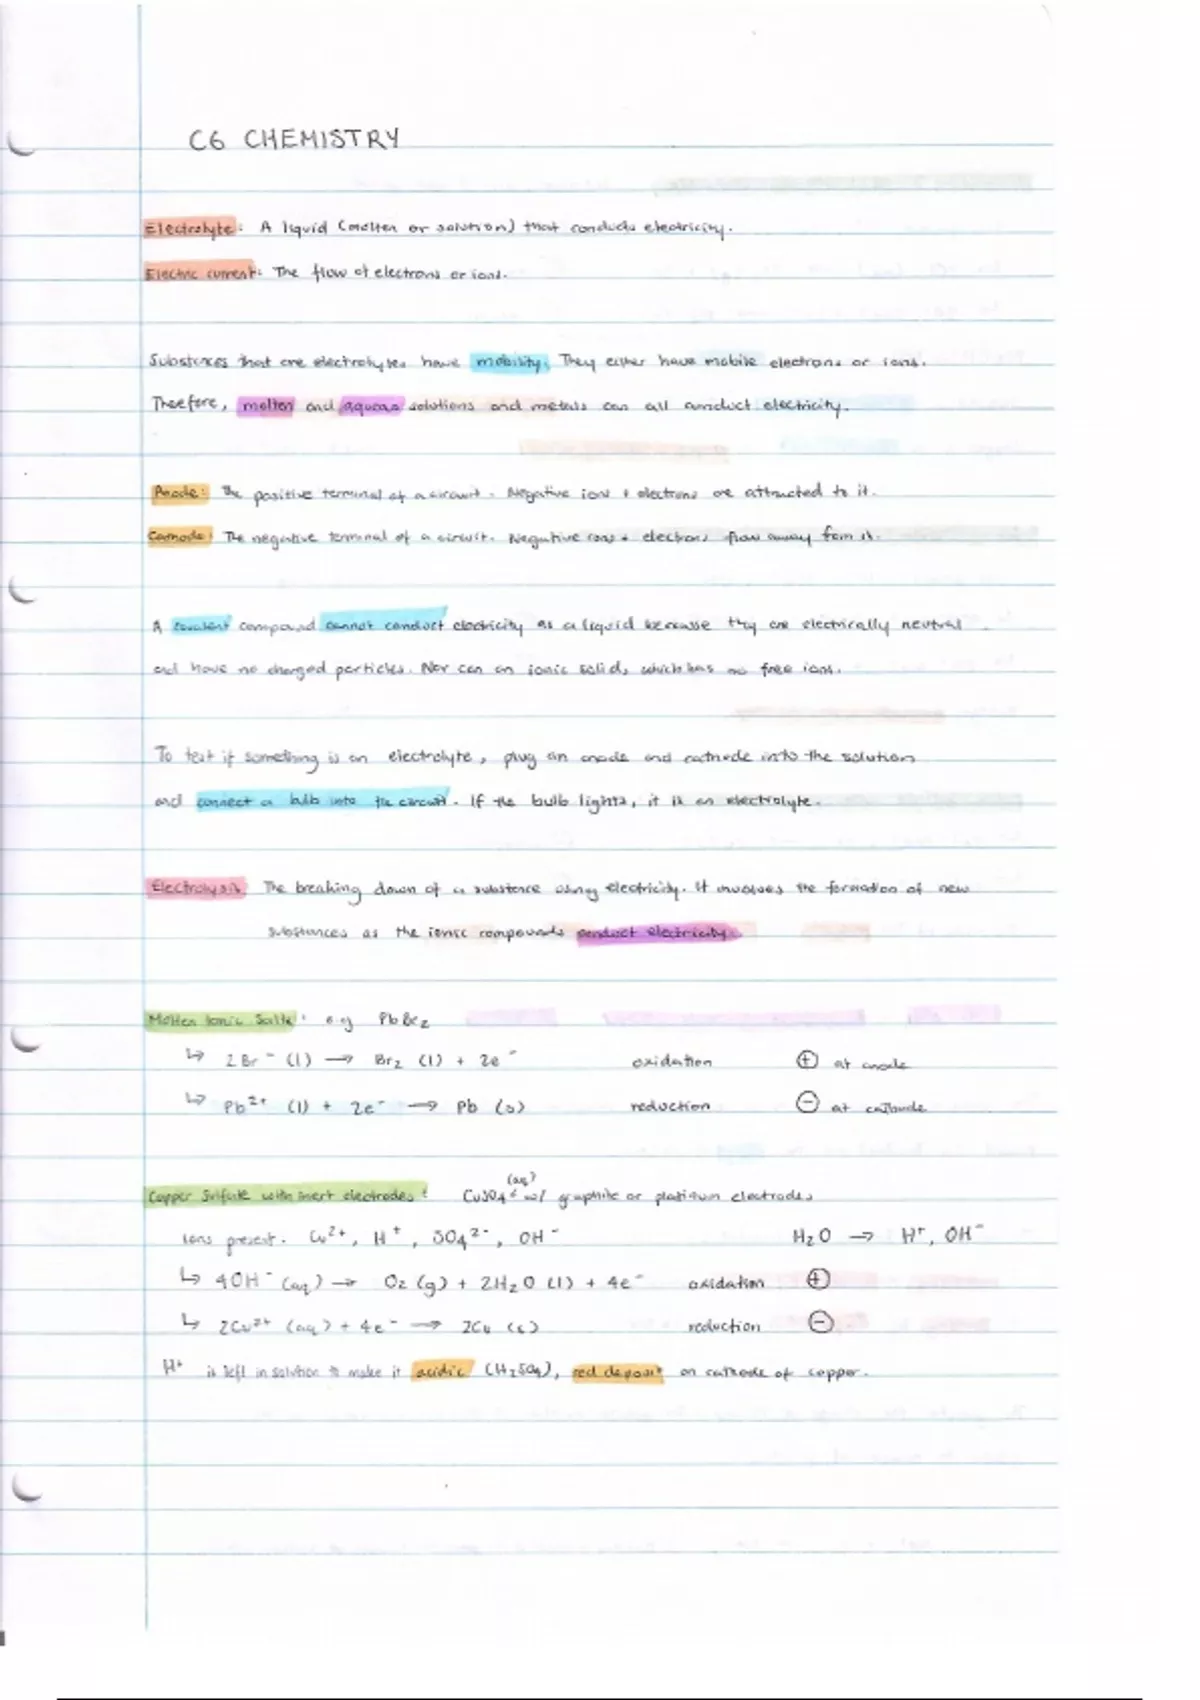 C6 CHEMISTRY
Electrolyte: A liquid (molten or solution) that conducts electricity.
Electric current: The flow of electrons or ions.
Substances that are electrolytes have mobility. They either have mobile electrons or ions.
Therefore, molten and aqueous solutions and metals can all conduct electricity.
Anode: The positive terminal of a circuit. Negative ions + electrons are attracted to it.
Cathode: The negative terminal of a circuit. Negative ions + electrons flow away from it.
A covalent compound cannot conduct electricity as a liquid because they are electrically neutral
and have no charged particles. Nor can an ionic solid, which has no free ions.
To test if something is an electrolyte, plug an anode and cathode into the solution
and connect a bulb into the circuit. If the bulb lights, it is an electrolyte.
Electrolysis: The breaking down of a substance using electricity. It involves the formation of new
substances as the ionic compounds conduct electricity.
Molten Ionic Salts: e.g PbBr₂
↳ 2Br⁻ (l) → Br₂ (l) + 2e⁻ oxidation ⊕ at anode
↳ Pb²⁺ (l) + 2e⁻ → Pb (s) reduction ⊖ at cathode
Copper Sulfate with inert electrodes: CuSO₄ (aq) w/ graphite or platinum electrodes
Ions present. Cu²⁺, H⁺, SO₄²⁻, OH⁻ H₂O → H⁺, OH⁻
↳ 4OH⁻ (aq) → O₂ (g) + 2H₂O (l) + 4e⁻ oxidation ⊕
↳ 2Cu²⁺ (aq) + 4e⁻ → 2Cu (s) reduction ⊖
H⁺ is left in solution to make it acidic (H₂SO₄), red deposit on cathode of copper.